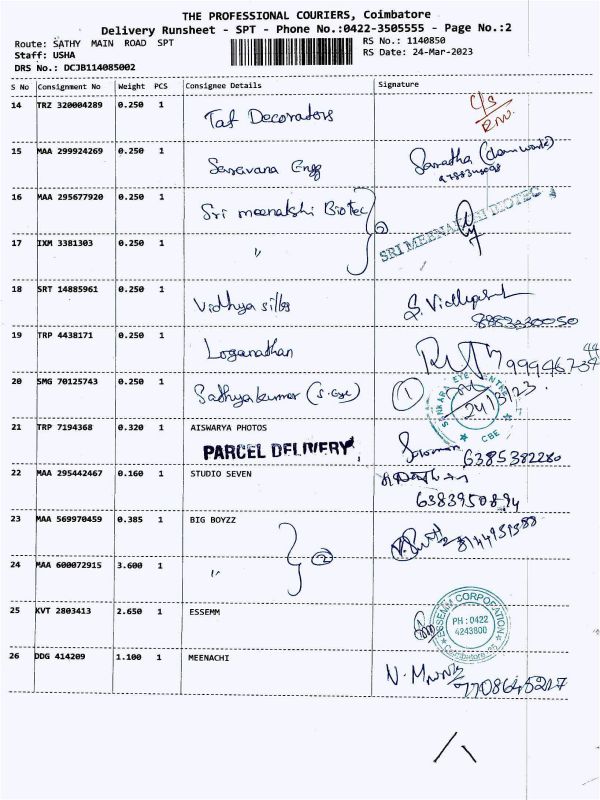 THE PROFESSIONAL COURIERS, Coimbatore
Delivery Runsheet - SPT - Phone No.:0422-3505555 - Page No.:2
Route: SATHY MAIN ROAD SPT
RS No.: 1140850
Staff: USHA
RS Date: 24-Mar-2023
DRS No.: DCJB114085002
S No Consignment No Weight PCS Consignee Details Signature
14 TRZ 320004289 0.250 1 Taf Decorators C/s
15 MAA 299924269 0.250 1 Saravana Engg
16 MAA 295677920 0.250 1 Sri meenakshi Biotec 2 SRI MEENAKSHI BIOTEC
17 IXM 3381303 0.250 1 "
18 SRT 14885961 0.250 1 Vidhya silks S. Vidhya
8883030050
19 TRP 4438171 0.250 1 Loganathan
20 SMG 70125743 0.250 1 Sathyakumar (S.Eye) 1 SANKARA EYE CENTRE CBE 24/3/23.
21 TRP 7194368 0.320 1 AISWARYA PHOTOS
PARCEL DELIVERY 6385382280
22 MAA 295442467 0.160 1 STUDIO SEVEN
6383950894
23 MAA 569970459 0.385 1 BIG BOYZZ
24 MAA 600072915 3.600 1 " 2
25 KVT 2803413 2.650 1 ESSEMM ESSENM CORPORATION PH : 0422 4243800 Coimbatore
26 DDG 414209 1.100 1 MEENACHI
7708645217